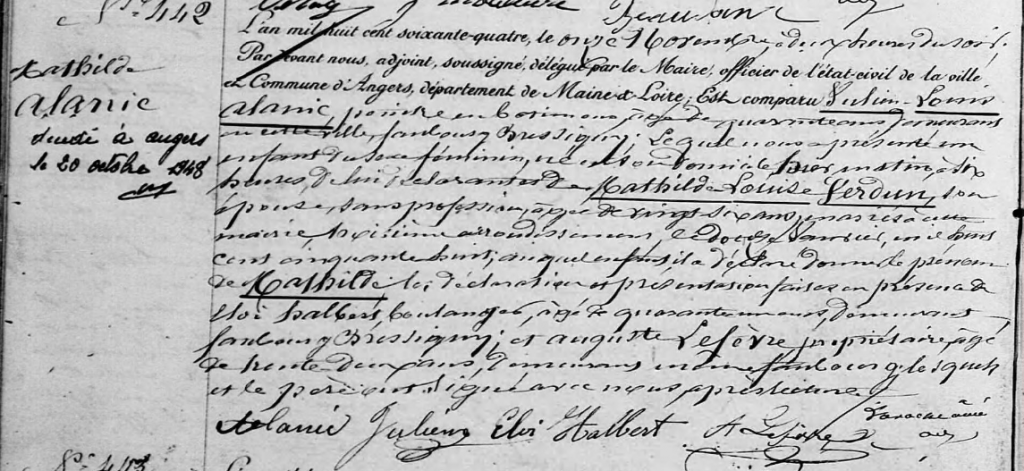 442
Mathilde
Alanic
décédée à Angers
le 20 octobre 1948
L'an mil huit cent soixante-quatre, le onze Novembre, à deux heures du soir,
Par devant nous, adjoint, soussigné, délégué par le Maire, officier de l'état-civil de la ville
et Commune d'Angers, département de Maine & Loire, Est comparu Julien-Louis
Alanic, peintre en bâtiment, âgé de quarante ans, demeurant
en cette ville, faubourg Bressigny; Lequel nous a présenté un
enfant du sexe féminin, né en son domicile hier matin, à six
heures, de lui déclarant et de Mathilde Louise Verdun, son
épouse, sans profession, âgée de vingt-six ans, mariés à
mairie, arrondissement, le douze Janvier, mil huit
cent cinquante huit; auquel enfant il a déclaré donner le prénom
de Mathilde les déclaration et présentation faites en présence de
Eloi Halbert, boulanger, âgé de quarante un ans, demeurant
faubourg Bressigny; et auguste Lefèvre propriétaire, âgé
de trente deux ans, demeurant même faubourg; lesquels
et le père ont signé avec nous après lecture
Alanic Julien Eloi Halbert A Lefèvre
443